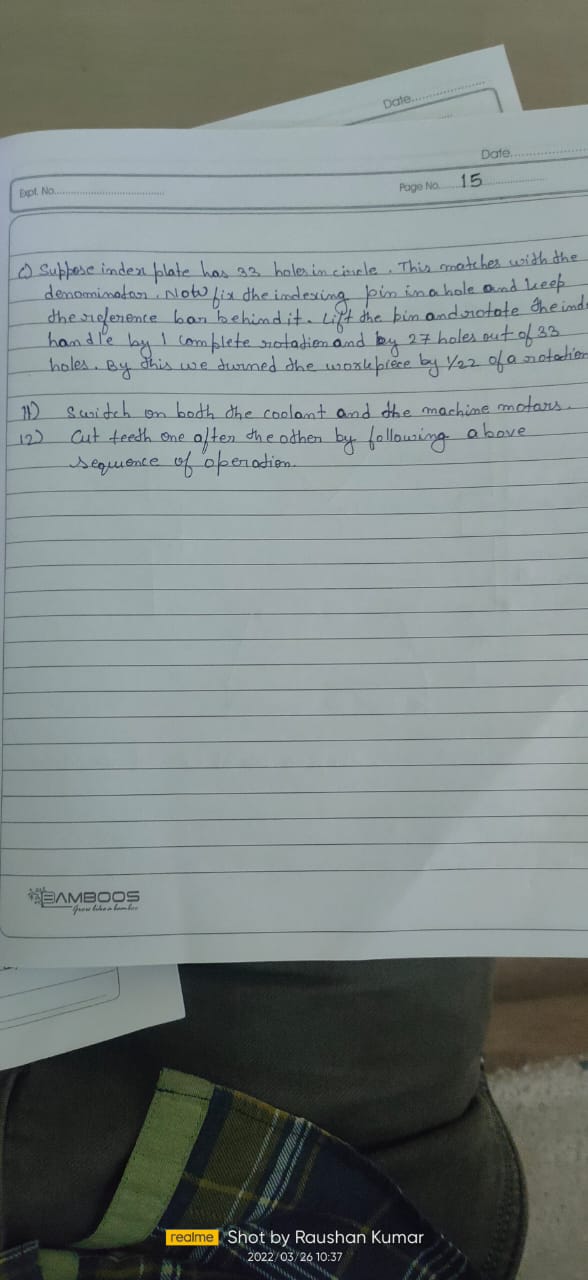 Date
Date
Expt. No.
Page No. 15
c) Suppose index plate has 33 holes in circle. This matches with the
denominator. Now fix the indexing pin in a hole and keep
the reference bar behind it. Lift the pin and rotate the ind
handle by 1 complete rotation and by 27 holes out of 33
holes. By this we turned the workpiece by 1/22 of a rotation
11) Switch on both the coolant and the machine motors.
12) Cut teeth one after the other by following above
sequence of operation.
BAMBOOS
Grow like a bamboo
realme Shot by Raushan Kumar
2022/03/26 10:37